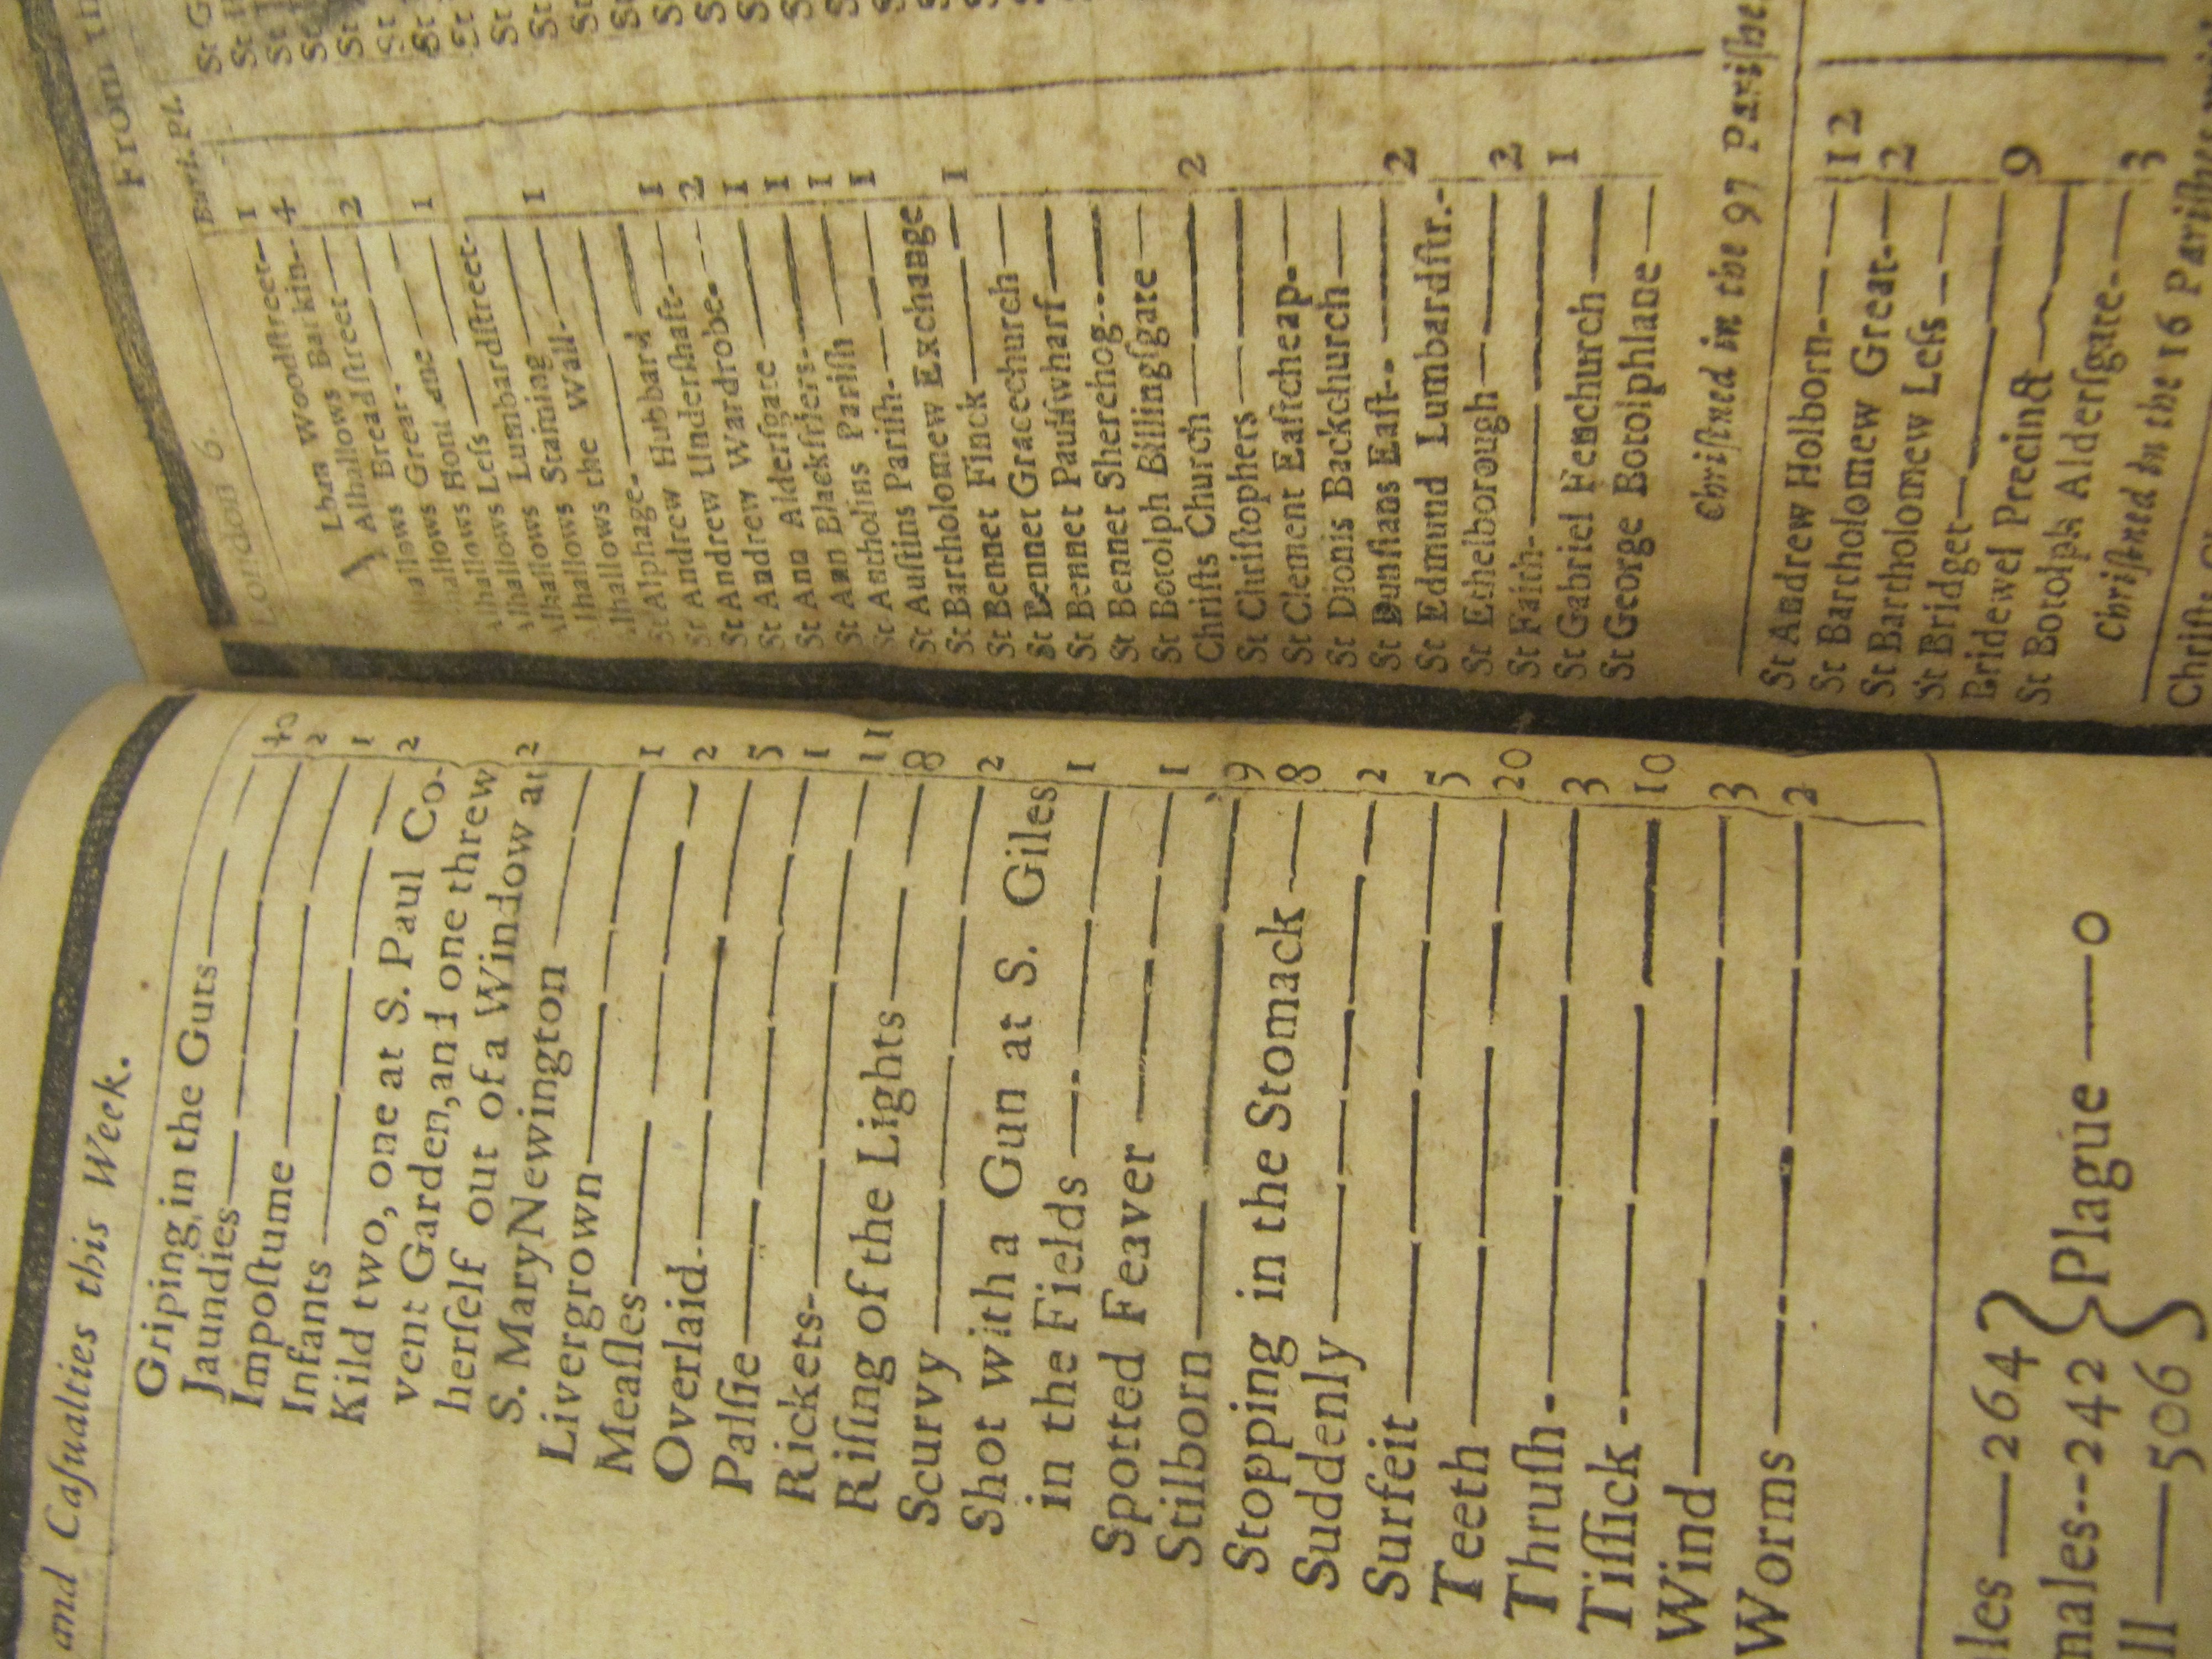 and Caſualties this Week.
Griping in the Guts 40
Jaundies 2
Impoſtume 1
Infants 2
Kild two, one at S. Paul Co-
vent Garden, and one threw
herſelf out of a Window at
S. Mary Newington 2
Livergrown 1
Meaſles 2
Overlaid 5
Palſie 1
Rickets 11
Riſing of the Lights 8
Scurvy 2
Shot with a Gun at S. Giles
in the Fields 1
Spotted Feaver 1
Stilborn 9
Stopping in the Stomack 8
Suddenly 2
Surfeit 5
Teeth 20
Thruſh 3
Tiſſick 10
Wind 3
Worms 2
les — 264
males -- 242
ll — 506
Plague — 0
From th
London 6.
Buri. Pl.
Lban Woodſtreet 1
Alhallows Barkin 4
Alhallows Breadſtreet 2
Alhallows Great
Alhallows Honilane 1
Alhallows Leſs
Alhallows Lumbardſtreet
Alhallows Staining 1
Alhallows the Wall
St Alphage
St Andrew Hubbard 1
St Andrew Underſhaft 2
St Andrew Wardrobe 1
St Ann Alderſgate 1
St Ann Blackfriers 1
St Antholins Pariſh 1
St Auſtins Pariſh
St Bartholomew Exchange
St Bennet Finck 1
St Bennet Gracechurch
St Bennet Paulſwharf
St Bennet Sherehog
St Botolph Billingſgate
Chriſts Church 2
St Chriſtophers
St Clement Eaſtcheap
St Dionis Backchurch
St Dunſtans Eaſt 2
St Edmund Lumbardſtr.
St Ethelborough 2
St Faith 1
St Gabriel Fenchurch
St George Botolphlane
Chriſtned in the 97 Pariſhe
St Andrew Holborn 12
St Bartholomew Great 2
St Bartholomew Leſs
St Bridget 9
Bridewel Precinct
St Botolph Alderſgate 3
Chriſtned in the 16 Pariſhes